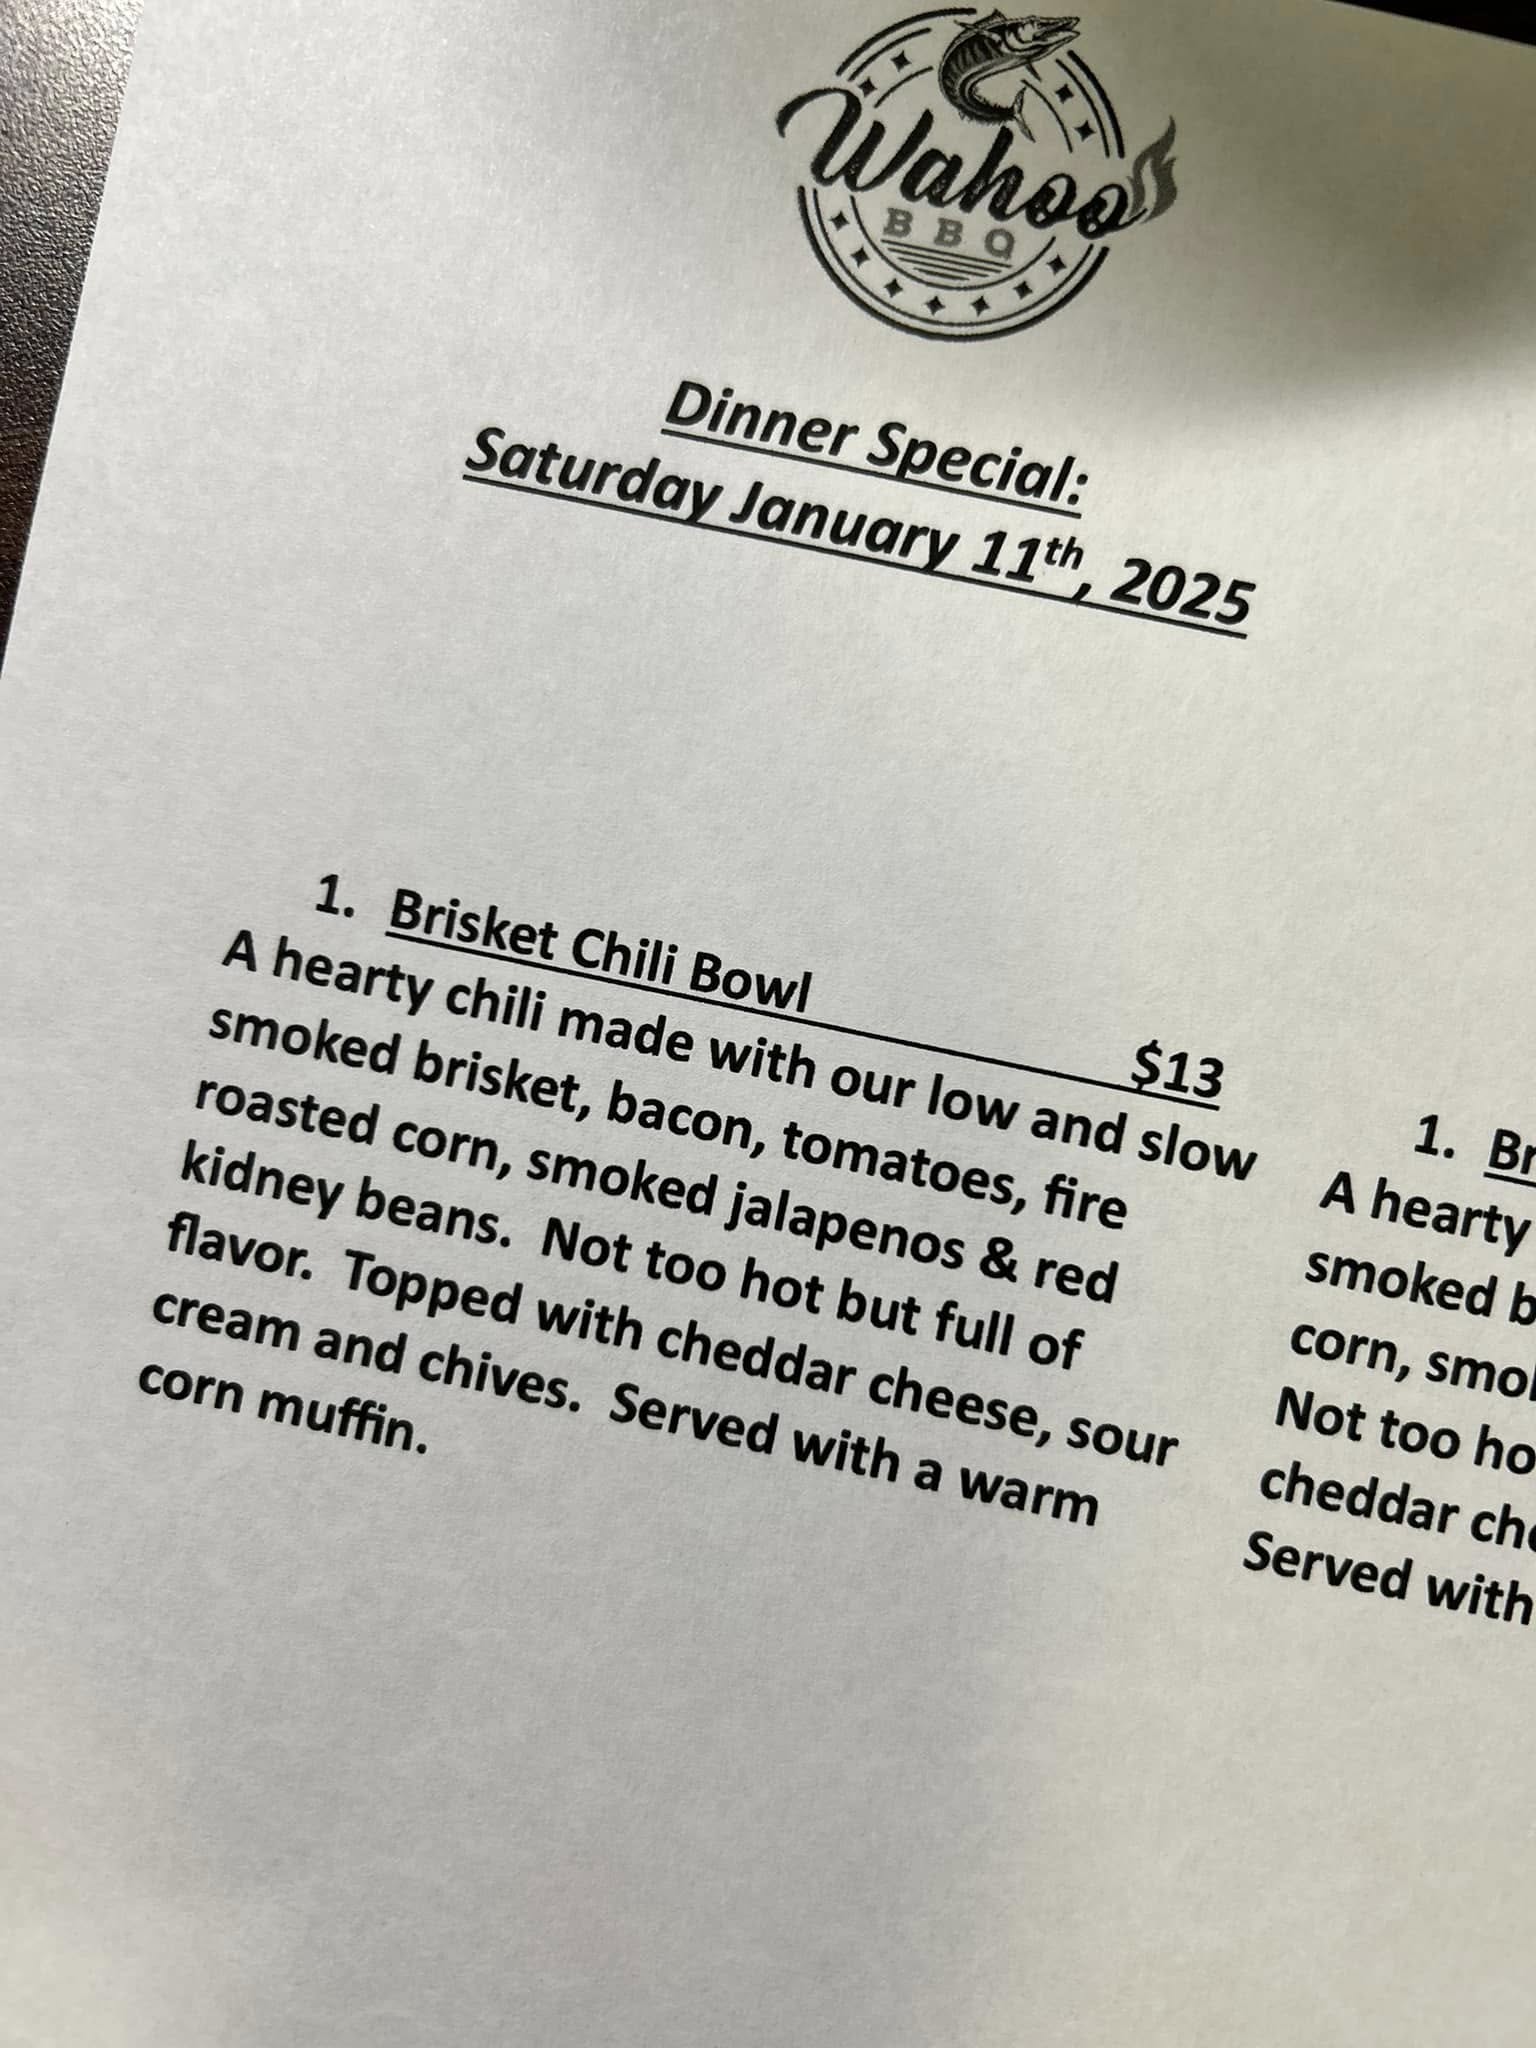 Wahoo
BBQ
Dinner Special:
Saturday January 11th, 2025
1. Brisket Chili Bowl $13
A hearty chili made with our low and slow
smoked brisket, bacon, tomatoes, fire
roasted corn, smoked jalapenos & red
kidney beans. Not too hot but full of
flavor. Topped with cheddar cheese, sour
cream and chives. Served with a warm
corn muffin.
1. Br
A hearty
smoked b
corn, smo
Not too ho
cheddar che
Served with